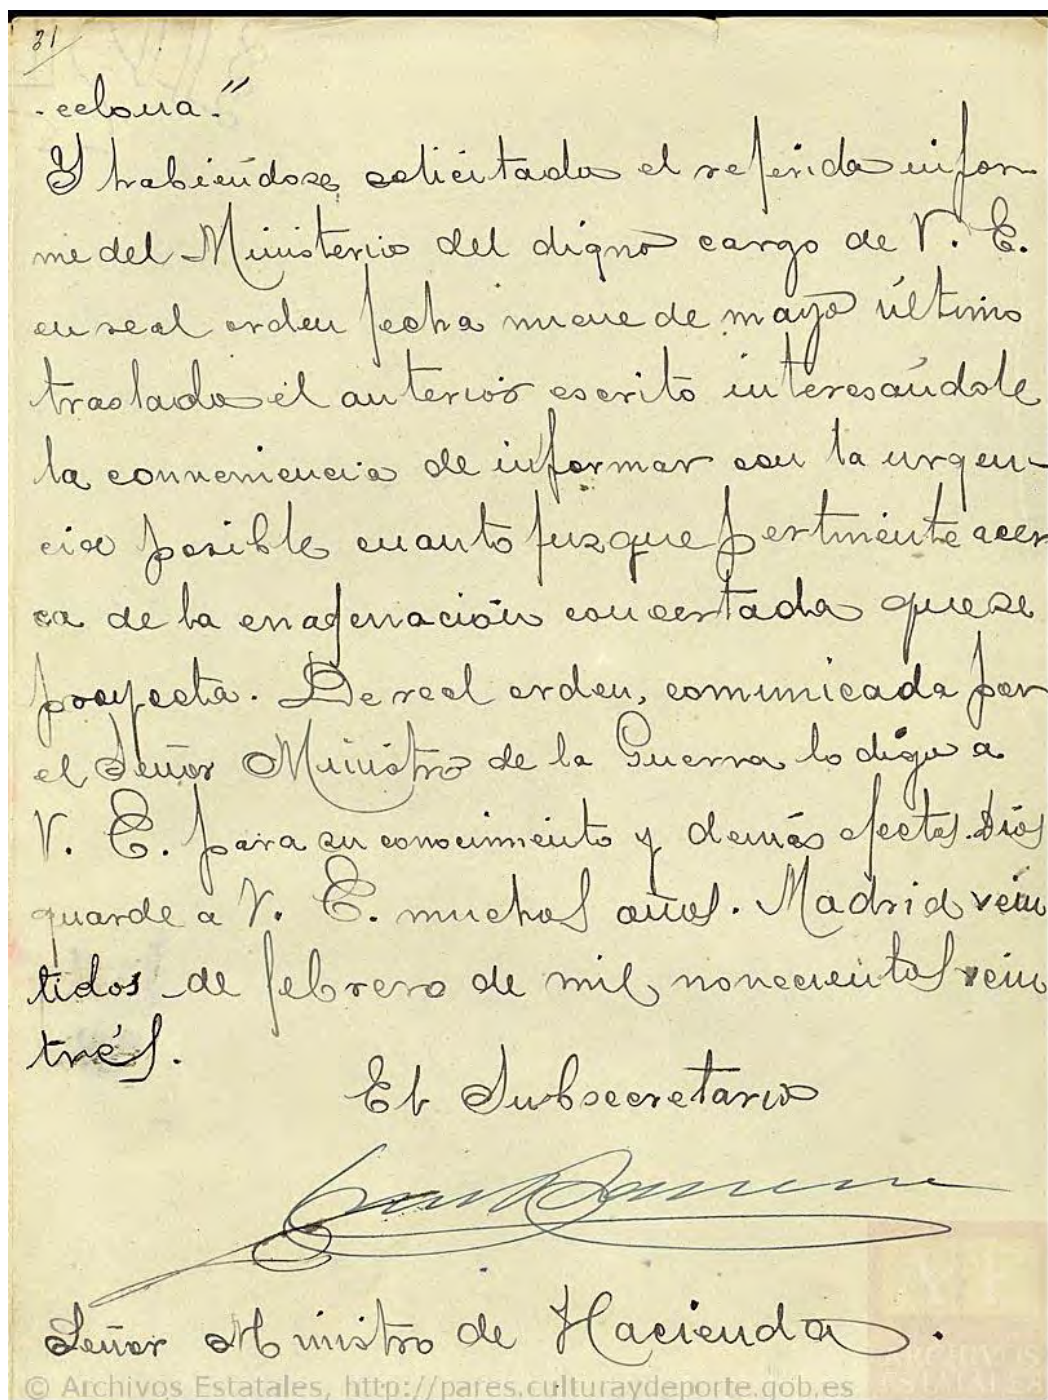 31
-celona."
Y habiéndose solicitado el referido infor
me del Ministerio del digno cargo de V. E.
en real orden fecha nueve de mayo último
traslado el anterior escrito interesándole
la conveniencia de informar con la urgen-
cia posible cuanto juzgue pertinente acer
ca de la enagenación concertada que se
proyecta. De real orden, comunicada por
el Señor Ministro de la Guerra lo digo a
V. E. para su conocimiento y demás efectos. Dios
guarde a V. E. muchos años. Madrid vein
tidos de febrero de mil novecientos vein
trés.
El Subsecretario
Señor Ministro de Hacienda.
© Archivos Estatales, http://pares.culturaydeporte.gob.es